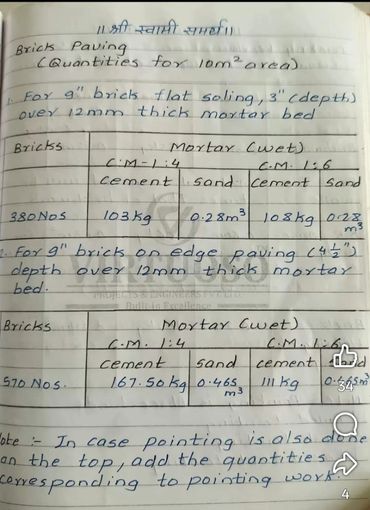 ॥ श्री स्वामी समर्थ ॥
Brick Paving
(Quantities for 10m² area)
1. For 9" brick flat soling, 3" (depth)
over 12mm thick mortar bed
Bricks Mortar (wet)
C.M-1:4 C.M. 1:6
cement sand cement sand
380 Nos 103 kg 0.28m³ 108 kg 0.28 m³
2. For 9" brick on edge paving (4½")
depth over 12mm thick mortar
bed.
PROJECTS & ENGINEERS PVT LTD.
Built-in Excellence
Bricks Mortar (wet)
C.M. 1:4 C.M. 1:6
cement sand cement sand
570 Nos. 167.50 kg 0.465 m³ 111 kg m³
34
Note :- In case pointing is also done
on the top, add the quantities
corresponding to pointing work.
4